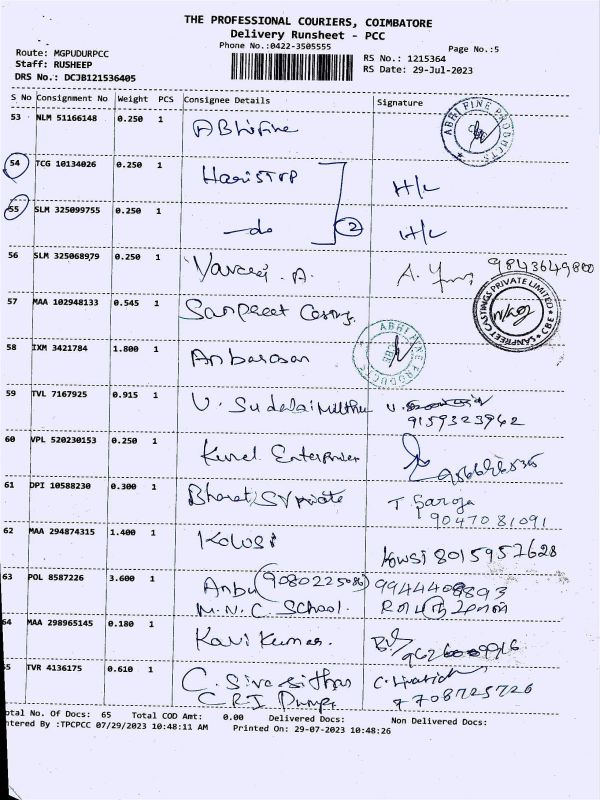 THE PROFESSIONAL COURIERS, COIMBATORE
Delivery Runsheet - PCC
Phone No.:0422-3505555
Page No.:5
Route: MGPUDURPCC
Staff: RUSHEEP
DRS No.: DCJB121536405
RS No.: 1215364
RS Date: 29-Jul-2023
S No Consignment No Weight PCS Consignee Details Signature
53 NLM 51166148 0.250 1 ABhiFine
ABHI FINE PRODUCTS CBE
54 TCG 10134026 0.250 1 H/L
55 SLM 325099755 0.250 1 —do 2 H/L
56 SLM 325068979 0.250 1 A. 9843649800
57 MAA 102948133 0.545 1 Sanpreet
SANPREET CASTINGS PRIVATE LIMITED CBE
58 IXM 3421784 1.800 1 Anbarasan
ABHI FINE PRODUCTS CBE
59 TVL 7167925 0.915 1 V. Sudalaimuthu
9159323942
60 VPL 520230153 0.250 1 Enterprises
61 DPI 10588230 0.300 1 Bharat T Saroja
90470 81091
62 MAA 294874315 1.400 1 Kowsi Kowsi 8015957628
63 POL 8587226 3.600 1 Anbu (9080225086) 9944408893
M.N.C. School.
64 MAA 298965145 0.180 1 Kavi Kumar.
55 TVR 4136175 0.610 1 C.
CRI Pumps 7708725726
otal No. Of Docs: 65 Total COD Amt: 0.00 Delivered Docs: Non Delivered Docs:
ntered By :TPCPCC 07/29/2023 10:48:11 AM Printed On: 29-07-2023 10:48:26